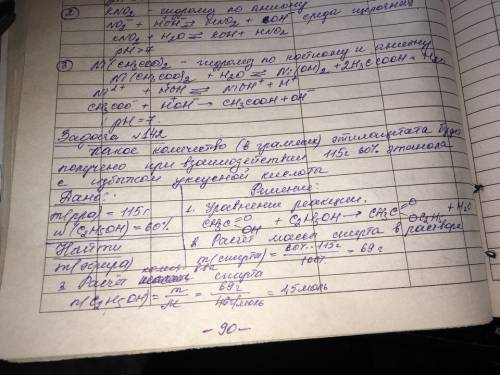 ② KNO₂ - гидролиз по аниону
NO₂⁻ + HOH ⇄ HNO₂ + OH⁻ среда щелочная
KNO₂ + H₂O ⇄ KOH + HNO₂
pH>7
③ Ni(CH₃COO)₂ - гидролиз по катиону и аниону
Ni(CH₃COO)₂ + H₂O ⇄ Ni(OH)₂ + 2H₃CCOOH +
Ni²⁺ + HOH ⇄ NiOH⁺ + H⁺
CH₃COO⁻ + HOH → CH₃COOH + OH⁻
pH=7
Задача №142
Какое количество (в граммах) этилацетата будет
получено при взаимодействии 115г 60% этанола
с избытком уксусной кислоты
Дано: Решение:
m(р-ра) = 115г 1. Уравнение реакции.
w(C₂H₅OH) = 60% CH₃C=O OH + C₂H₅OH → CH₃C=O OC₂H₅ + H₂O
Найти 2. Расчёт массы спирта в растворе
m(эфира) m(спирта) = 60%·115г / 100% = 69г
3. Расчёт спирта
n(C₂H₅OH) = m/M = 69г / = 1,5моль
-90-